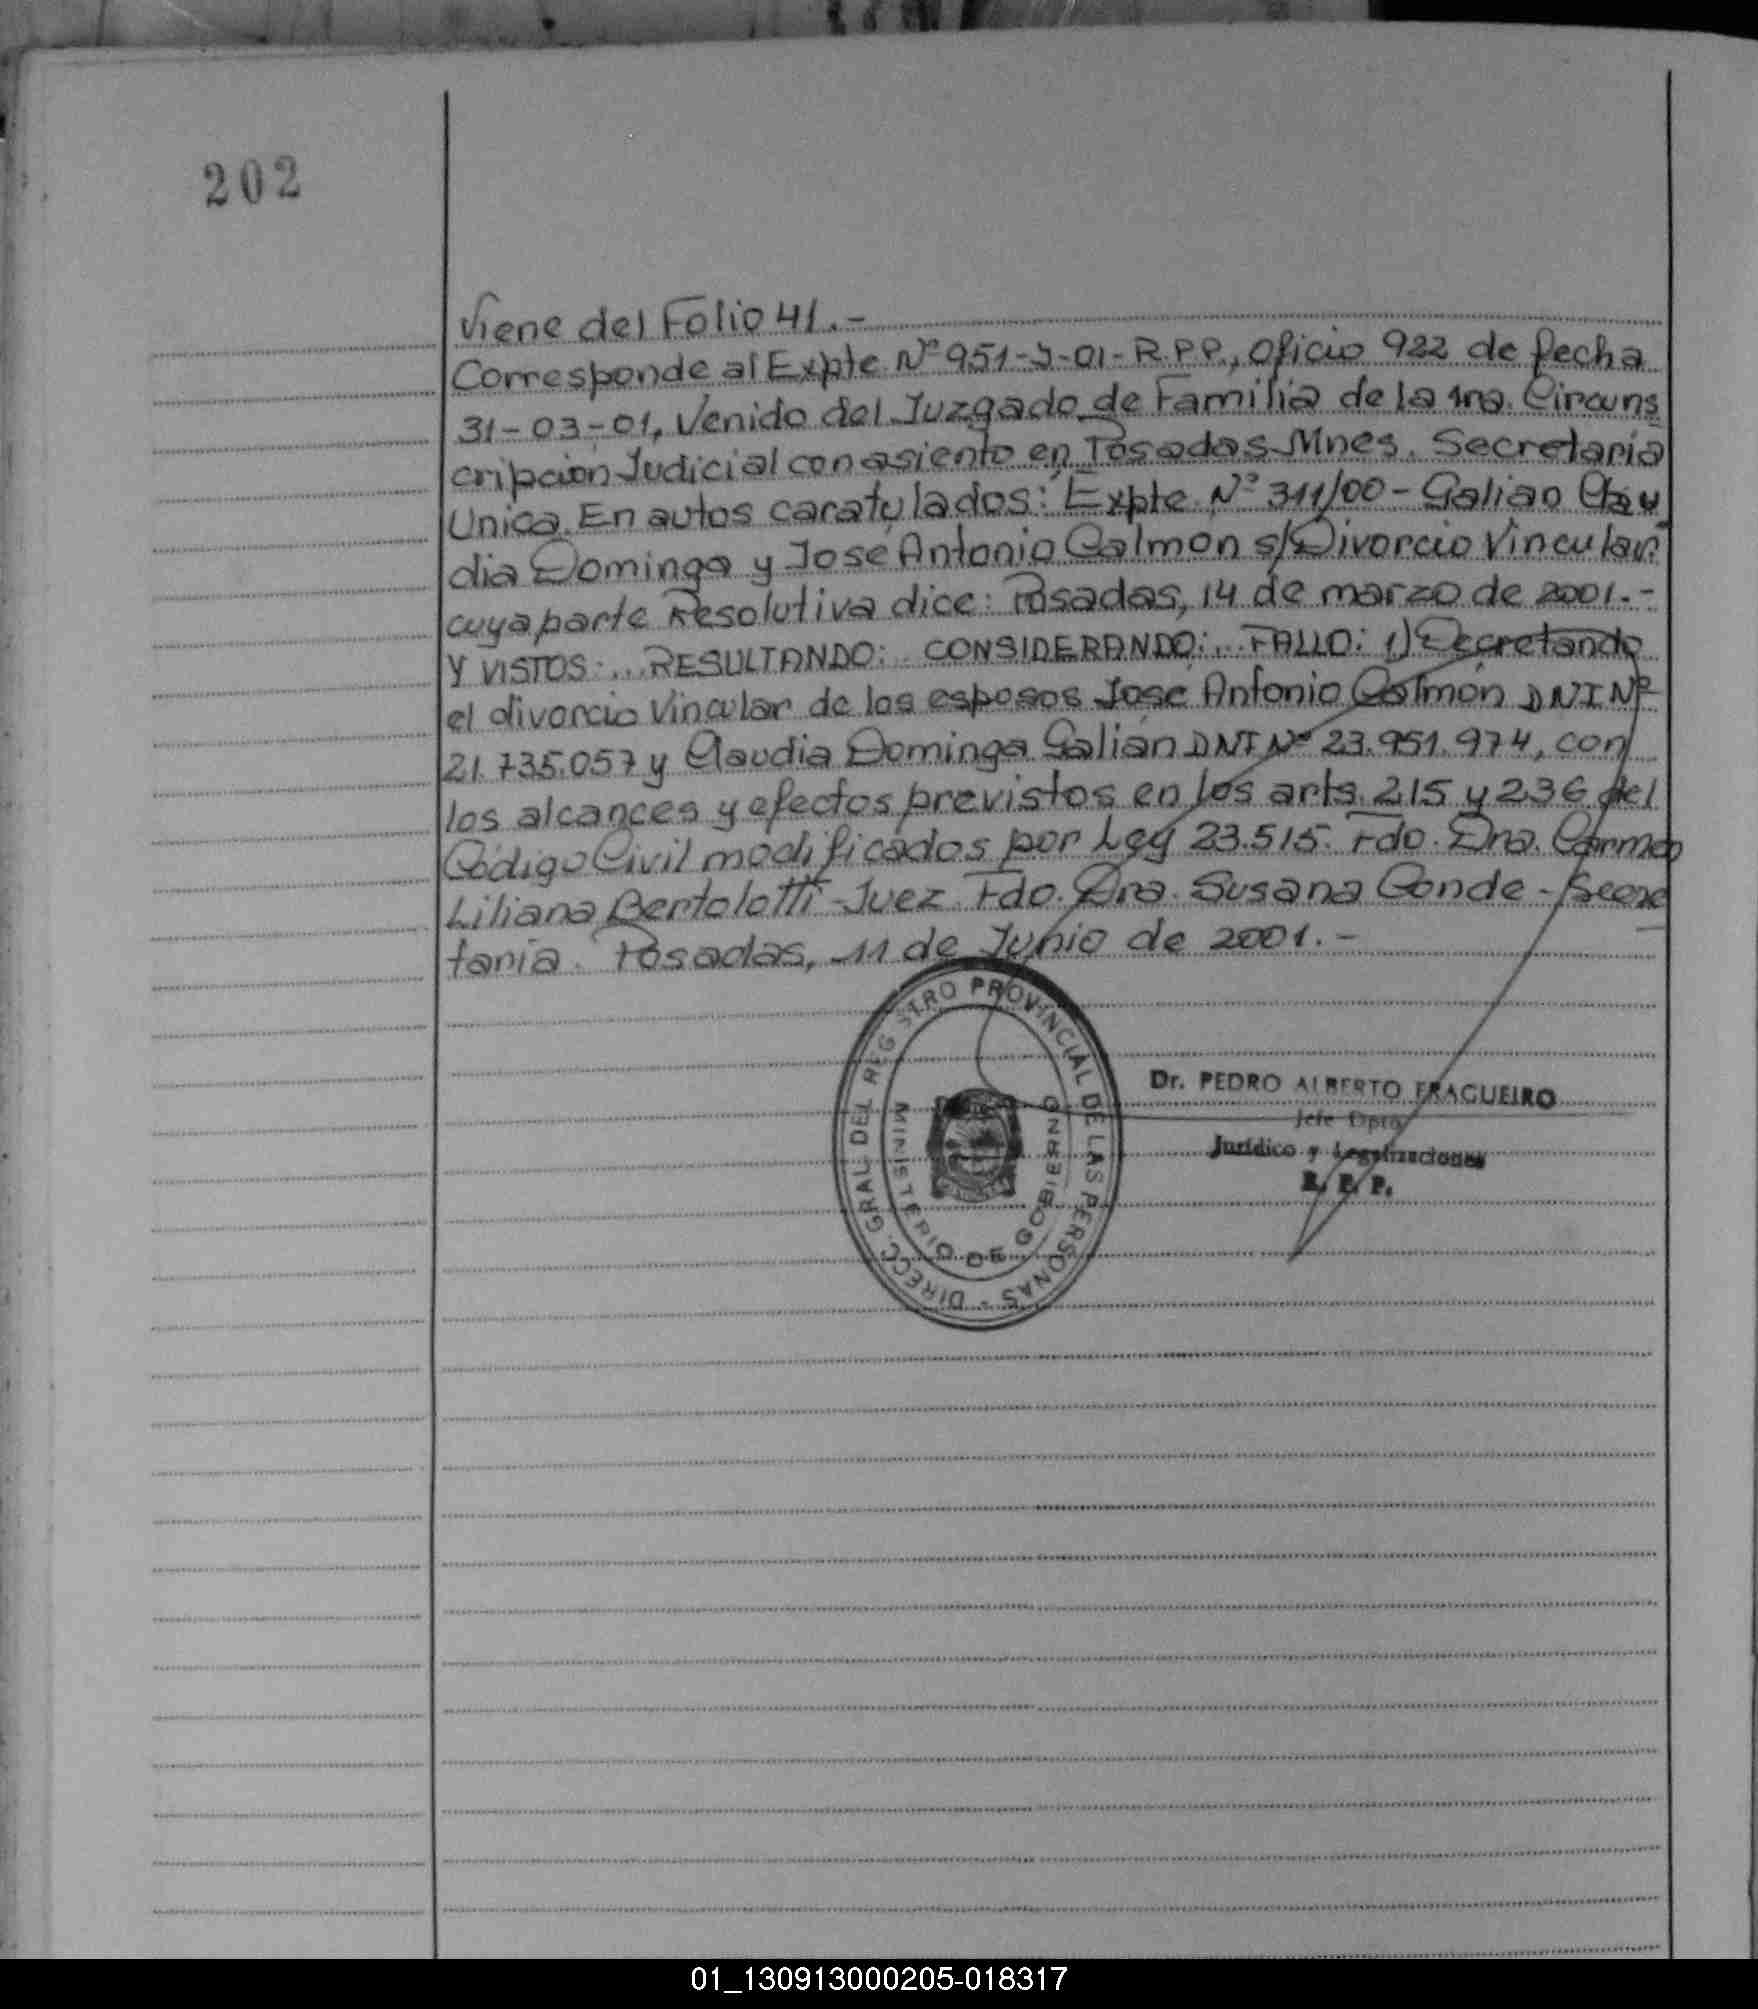 202
Viene del Folio 41.-
Corresponde al Expte. Nº 951-J-01-R.P.P., Oficio 922 de fecha
31-03-01, Venido del Juzgado de Familia de la 1ra. Circuns
cripcion Judicial con asiento en Posadas Mnes. Secretaria
Unica. En autos caratulados: "Expte. Nº 311/00 - Galiao Clau
dia Dominga y José Antonio Calmon s/Divorcio Vincular"
cuya parte Resolutiva dice: Posadas, 14 de marzo de 2001.-
Y VISTOS:... RESULTANDO:.. CONSIDERANDO:... FALLO: 1) Decretando
el divorcio Vincular de los esposos José Antonio Calmón DNI Nº
21.735.057 y Claudia Dominga Galián DNI Nº 23.951.974, con
los alcances y efectos previstos en los arts. 215 y 236 del
Código Civil modificados por Ley 23.515. Fdo. Dra. Carmen
Liliana Bertolotti - Juez. Fdo. Dra. Susana Conde - Secre
taria. Posadas, 11 de Junio de 2001.-
DIRECC. GRAL DEL REGISTRO PROVINCIAL DE LAS PERSONAS -
MINISTERIO DE GOBIERNO
Dr. PEDRO ALBERTO FRAGUEIRO
Jefe Dpto
Jurídico y Legalizaciones
R. P. P.
01_130913000205-018317